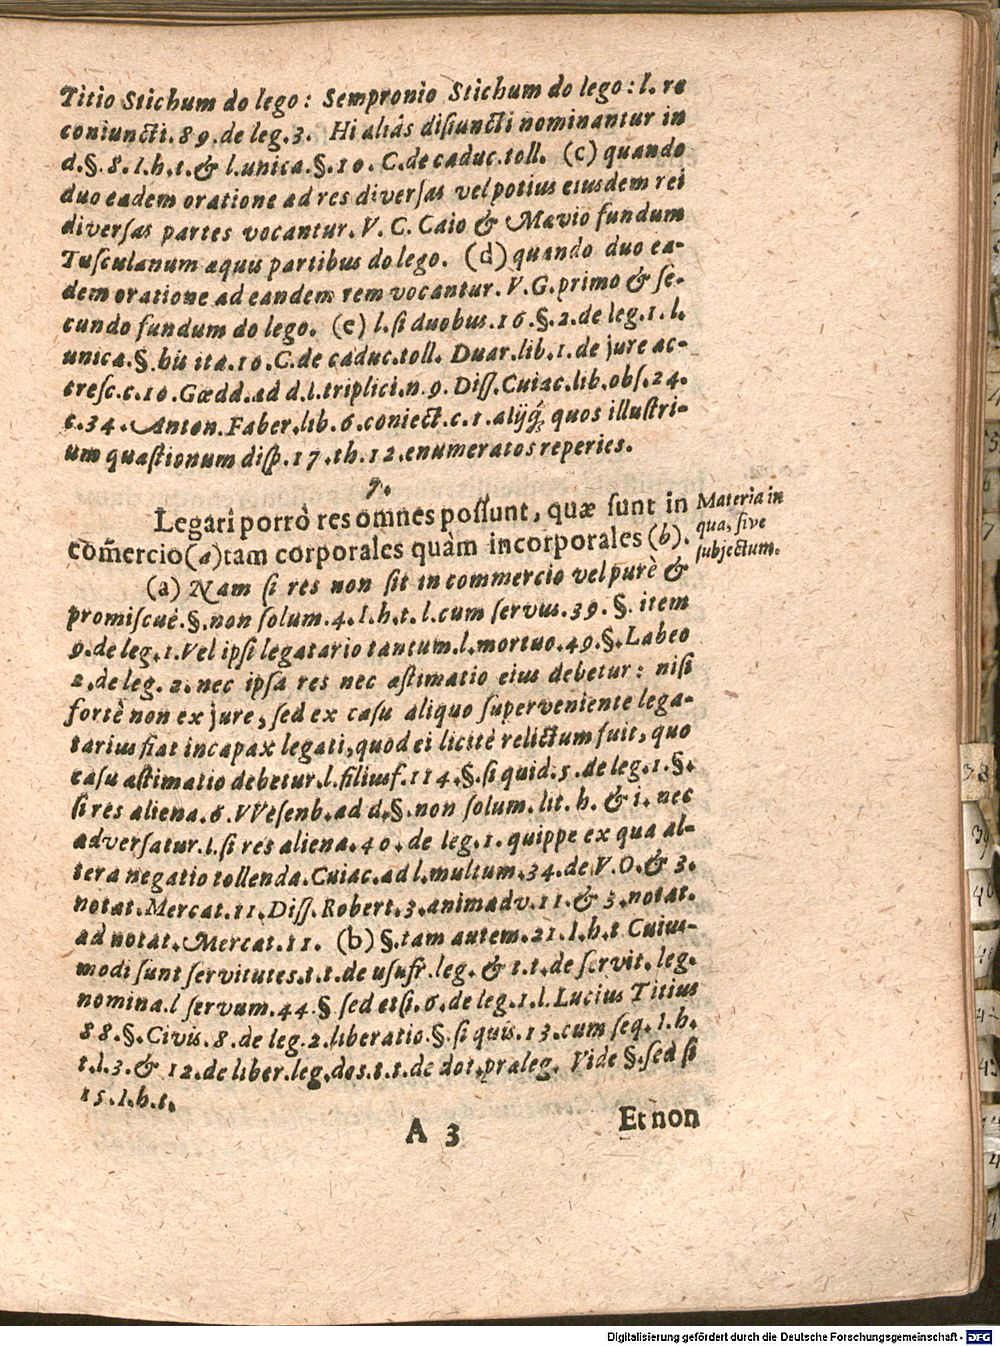 Titio Stichum do lego: Sempronio Stichum do lego: l. re
coniuncti. 89. de leg. 3. Hi aliàs disiuncti nominantur in
d. §. 8. I. h. t. & l. unica. §. 10. C. de caduc. toll. (c) quando
duo eadem oratione ad res diversas vel potius eiusdem rei
diversas partes vocantur. V. C. Caio & Mævio fundum
Tusculanum æquis partibus do lego. (d) quando duo ea-
dem oratione ad eandem rem vocantur. V. G. primo & se-
cundo fundum do lego. (e) l. si duobus. 16. §. 2. de leg. 1. l.
unica. §. his ita. 10. C. de caduc. toll. Duar. lib. 1. de jure ac-
cresc. c. 10. Gœdd. ad d. l. triplici. n. 9. Diss. Cuiac. lib. obs. 24.
c. 34. Anton. Faber. lib. 6. coniect. c. 1. alijq́; quos illustri-
um quæstionum disp. 17. th. 12. enumeratos reperies.
7.
Legari porrò res omnes possunt, quæ sunt in
com̃ercio (a) tam corporales quàm incorporales (b).
Materia in
qua, sive
subjectum.
(a) Nam si res non sit in commercio vel purè &
promiscuè. §. non solum. 4. I. h. t. l. cum servus. 39. §. item
9. de leg. 1. Vel ipsi legatario tantum. l. mortuo. 49. §. Labeo
2. de leg. 2. nec ipsa res nec æstimatio eius debetur: nisi
fortè non ex jure, sed ex casu aliquo superveniente lega-
tarius fiat incapax legati, quod ei licitè relictum fuit, quo
casu æstimatio debetur. l. filiusf. 114. §. si quid. 5. de leg. 1. §.
si res aliena. 6. VVesenb. ad d. §. non solum. lit. h. & i. nec
adversatur. l. si res aliena. 40. de leg. 1. quippe ex qua al-
tera negatio tollenda. Cuiac. ad l. multum. 34. de V. O. & 3.
notat. Mercat. 11. Diss. Robert. 3. animadv. 11. & 3. notat.
ad notat. Mercat. 11. (b) §. tam autem. 21. I. h. t Cuius-
modi sunt servitutes. t. t. de usufr. leg. & t. t. de servit. leg.
nomina. l servum. 44 § sed etsi. 6. de leg. 1. l. Lucius Titius
88. §. Civis. 8. de leg. 2. liberatio. §. si quis. 13. cum seq. I. h.
t. l. 3. & 12. de liber. leg. dos. t. t. de dot. præleg. Vide §. sed si
15. I. h. t.
A 3
Et non
Digitalisierung gefördert durch die Deutsche Forschungsgemeinschaft - DFG